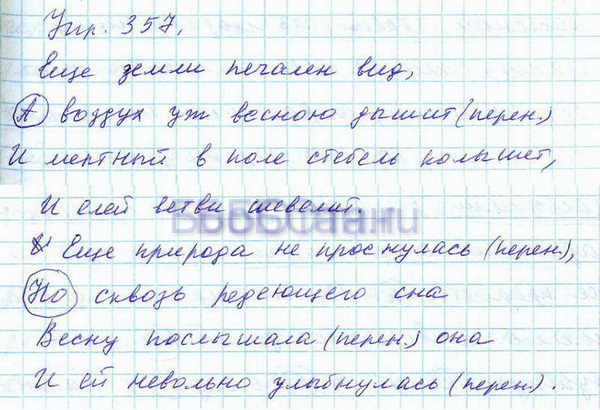 Упр. 357.
Еще земли печален вид,
А воздух уж весною дышит (перен.)
И мертный в поле стебель колышет,
И елей ветви шевелит.
Еще природа не проснулась (перен.),
Но сквозь редеющего сна
Весну послышала (перен.) она
И ей невольно улыбнулась (перен.).